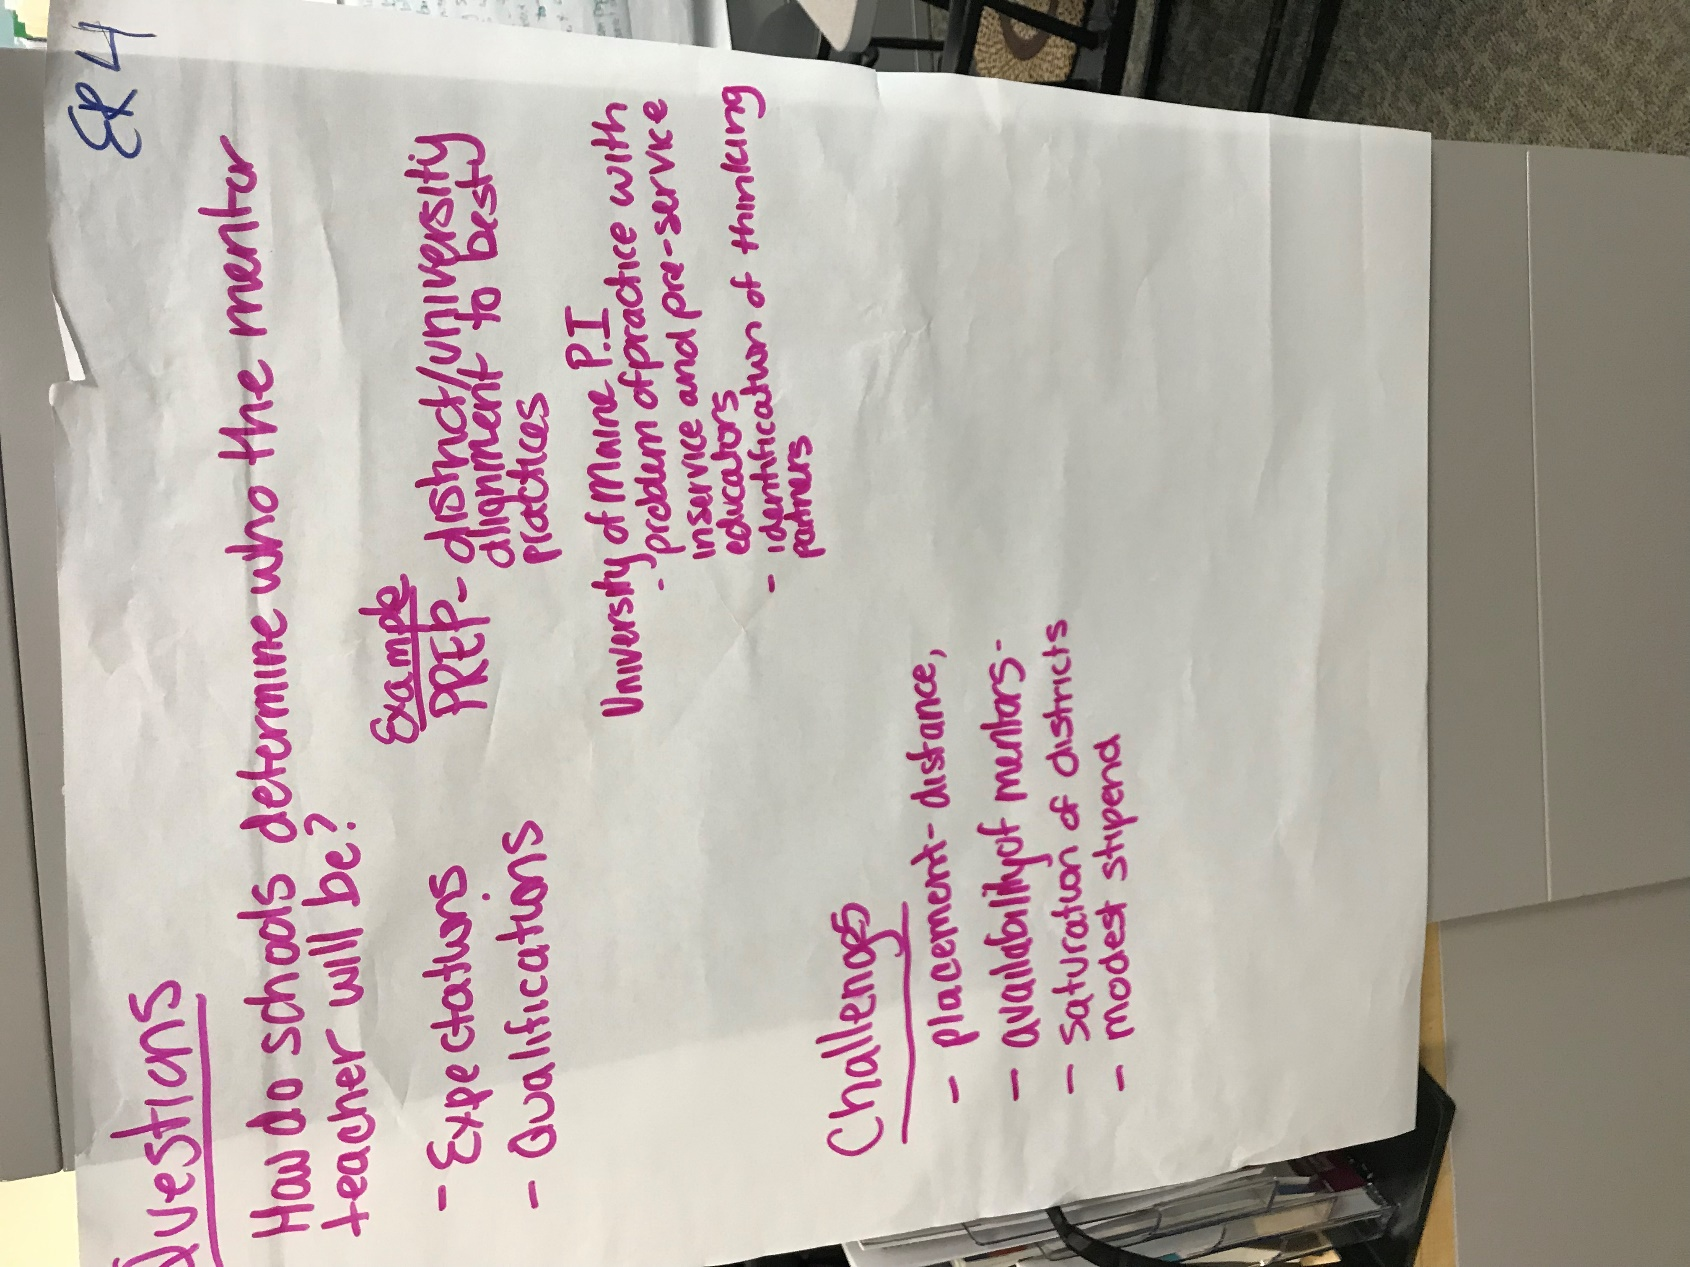 ER 4
Questions
How do schools determine who the mentor
teacher will be?
- Expectations
- Qualifications
Example
PREP- district/university
alignment to best
practices
University of Maine P.I
- problem of practice with
inservice and pre-service
educators
- identification of thinking
partners
Challenges
- placement- distance,
- availability of mentors-
- saturation of districts
- modest stipend